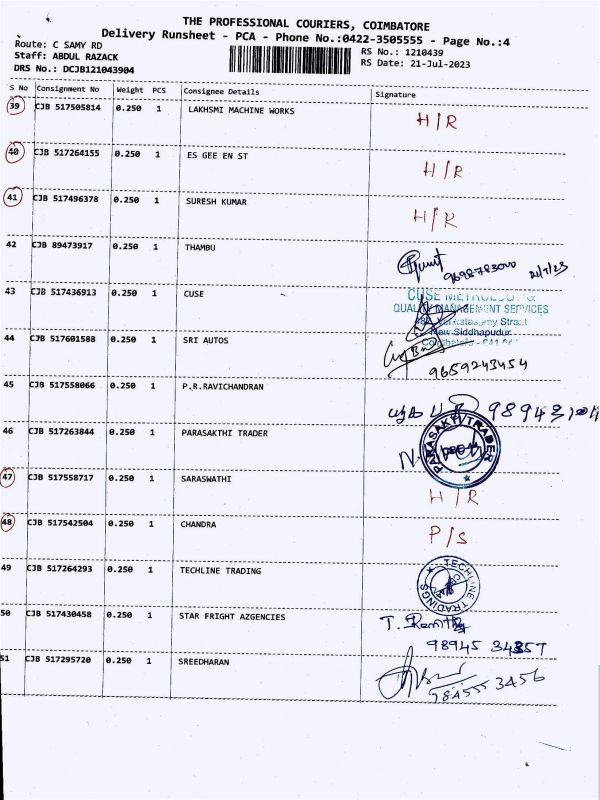 THE PROFESSIONAL COURIERS, COIMBATORE
Delivery Runsheet - PCA - Phone No.:0422-3505555 - Page No.:4
Route: C SAMY RD
Staff: ABDUL RAZACK
DRS No.: DCJB121043904
RS No.: 1210439
RS Date: 21-Jul-2023
S No Consignment No Weight PCS Consignee Details Signature
39 CJB 517505814 0.250 1 LAKHSMI MACHINE WORKS H/R
40 CJB 517264155 0.250 1 ES GEE EN ST H/R
41 CJB 517496378 0.250 1 SURESH KUMAR H/R
42 CJB 89473917 0.250 1 THAMBU
21/7/23
43 CJB 517436913 0.250 1 CUSE
CUSE
QUALITY MANAGEMENT SERVICES
Street
New Siddhapudur
44 CJB 517601588 0.250 1 SRI AUTOS
9659243454
45 CJB 517558066 0.250 1 P.R.RAVICHANDRAN
46 CJB 517263844 0.250 1 PARASAKTHI TRADER
PARASAKTHI TRADER
47 CJB 517558717 0.250 1 SARASWATHI H/R
48 CJB 517542504 0.250 1 CHANDRA P/S
49 CJB 517264293 0.250 1 TECHLINE TRADING
TECHLINE TRADINGS
50 CJB 517430458 0.250 1 STAR FRIGHT AZGENCIES
98945
51 CJB 517295720 0.250 1 SREEDHARAN